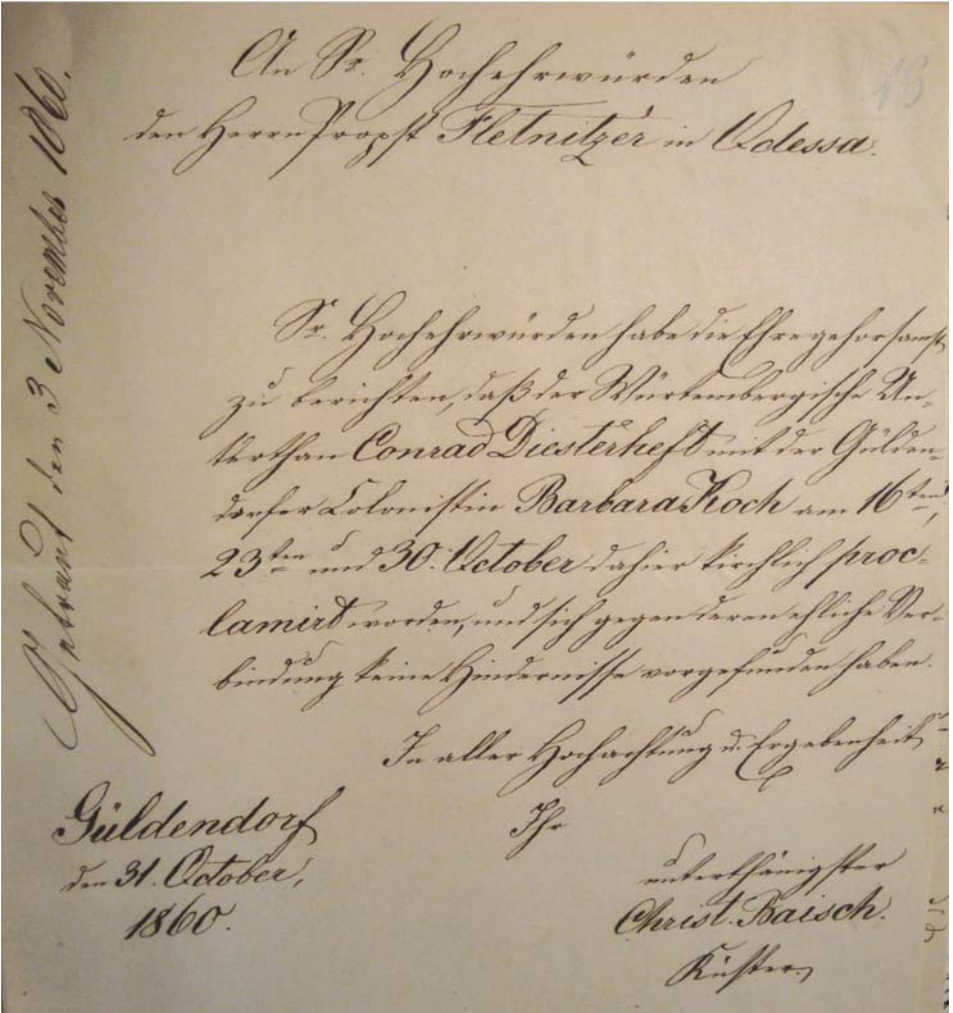 An Sr. Hochehrwürden
den Herrn Propst Fletnitzer in Odessa.
16
Sr. Hochehrwürden habe die Ehre gehorsamst
zu berichten, daß der Würtembergische Un-
terthan Conrad Diesterheft mit der Gülden-
dorfer Colonistin Barbara Koch am 16ten,
23ten und 30. October dahier kirchlich proc-
lamirt worden, und sich gegen deren ehliche Ver-
bindung keine Hindernisse vorgefunden haben.
In aller Hochachtung u. Ergebenheit
Ihr
unterthänigster
Christ. Baisch.
Küster.
Güldendorf
den 31. October,
1860.
Getraut den 3 November 1860.